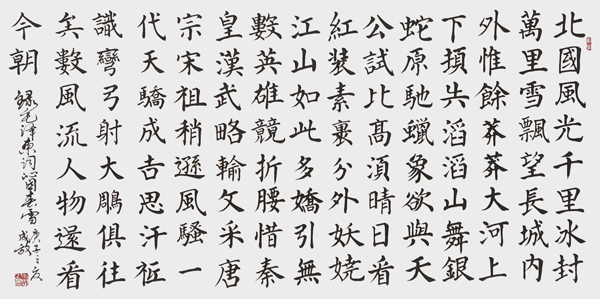 北國風光千里冰封
萬里雪飄望長城内
外惟餘莽莽大河上
下頓失滔滔山舞銀
蛇原馳蠟象欲與天
公試比髙須晴日看
紅裝素裹分外妖嬈
江山如此多嬌引無
數英雄競折腰惜秦
皇漢武略輸文采唐
宗宋祖稍遜風騷一
代天驕成吉思汗祗
識彎弓射大鵰俱往
矣數風流人物還看
今朝
錄毛澤東詞沁園春雪
庚子之夏